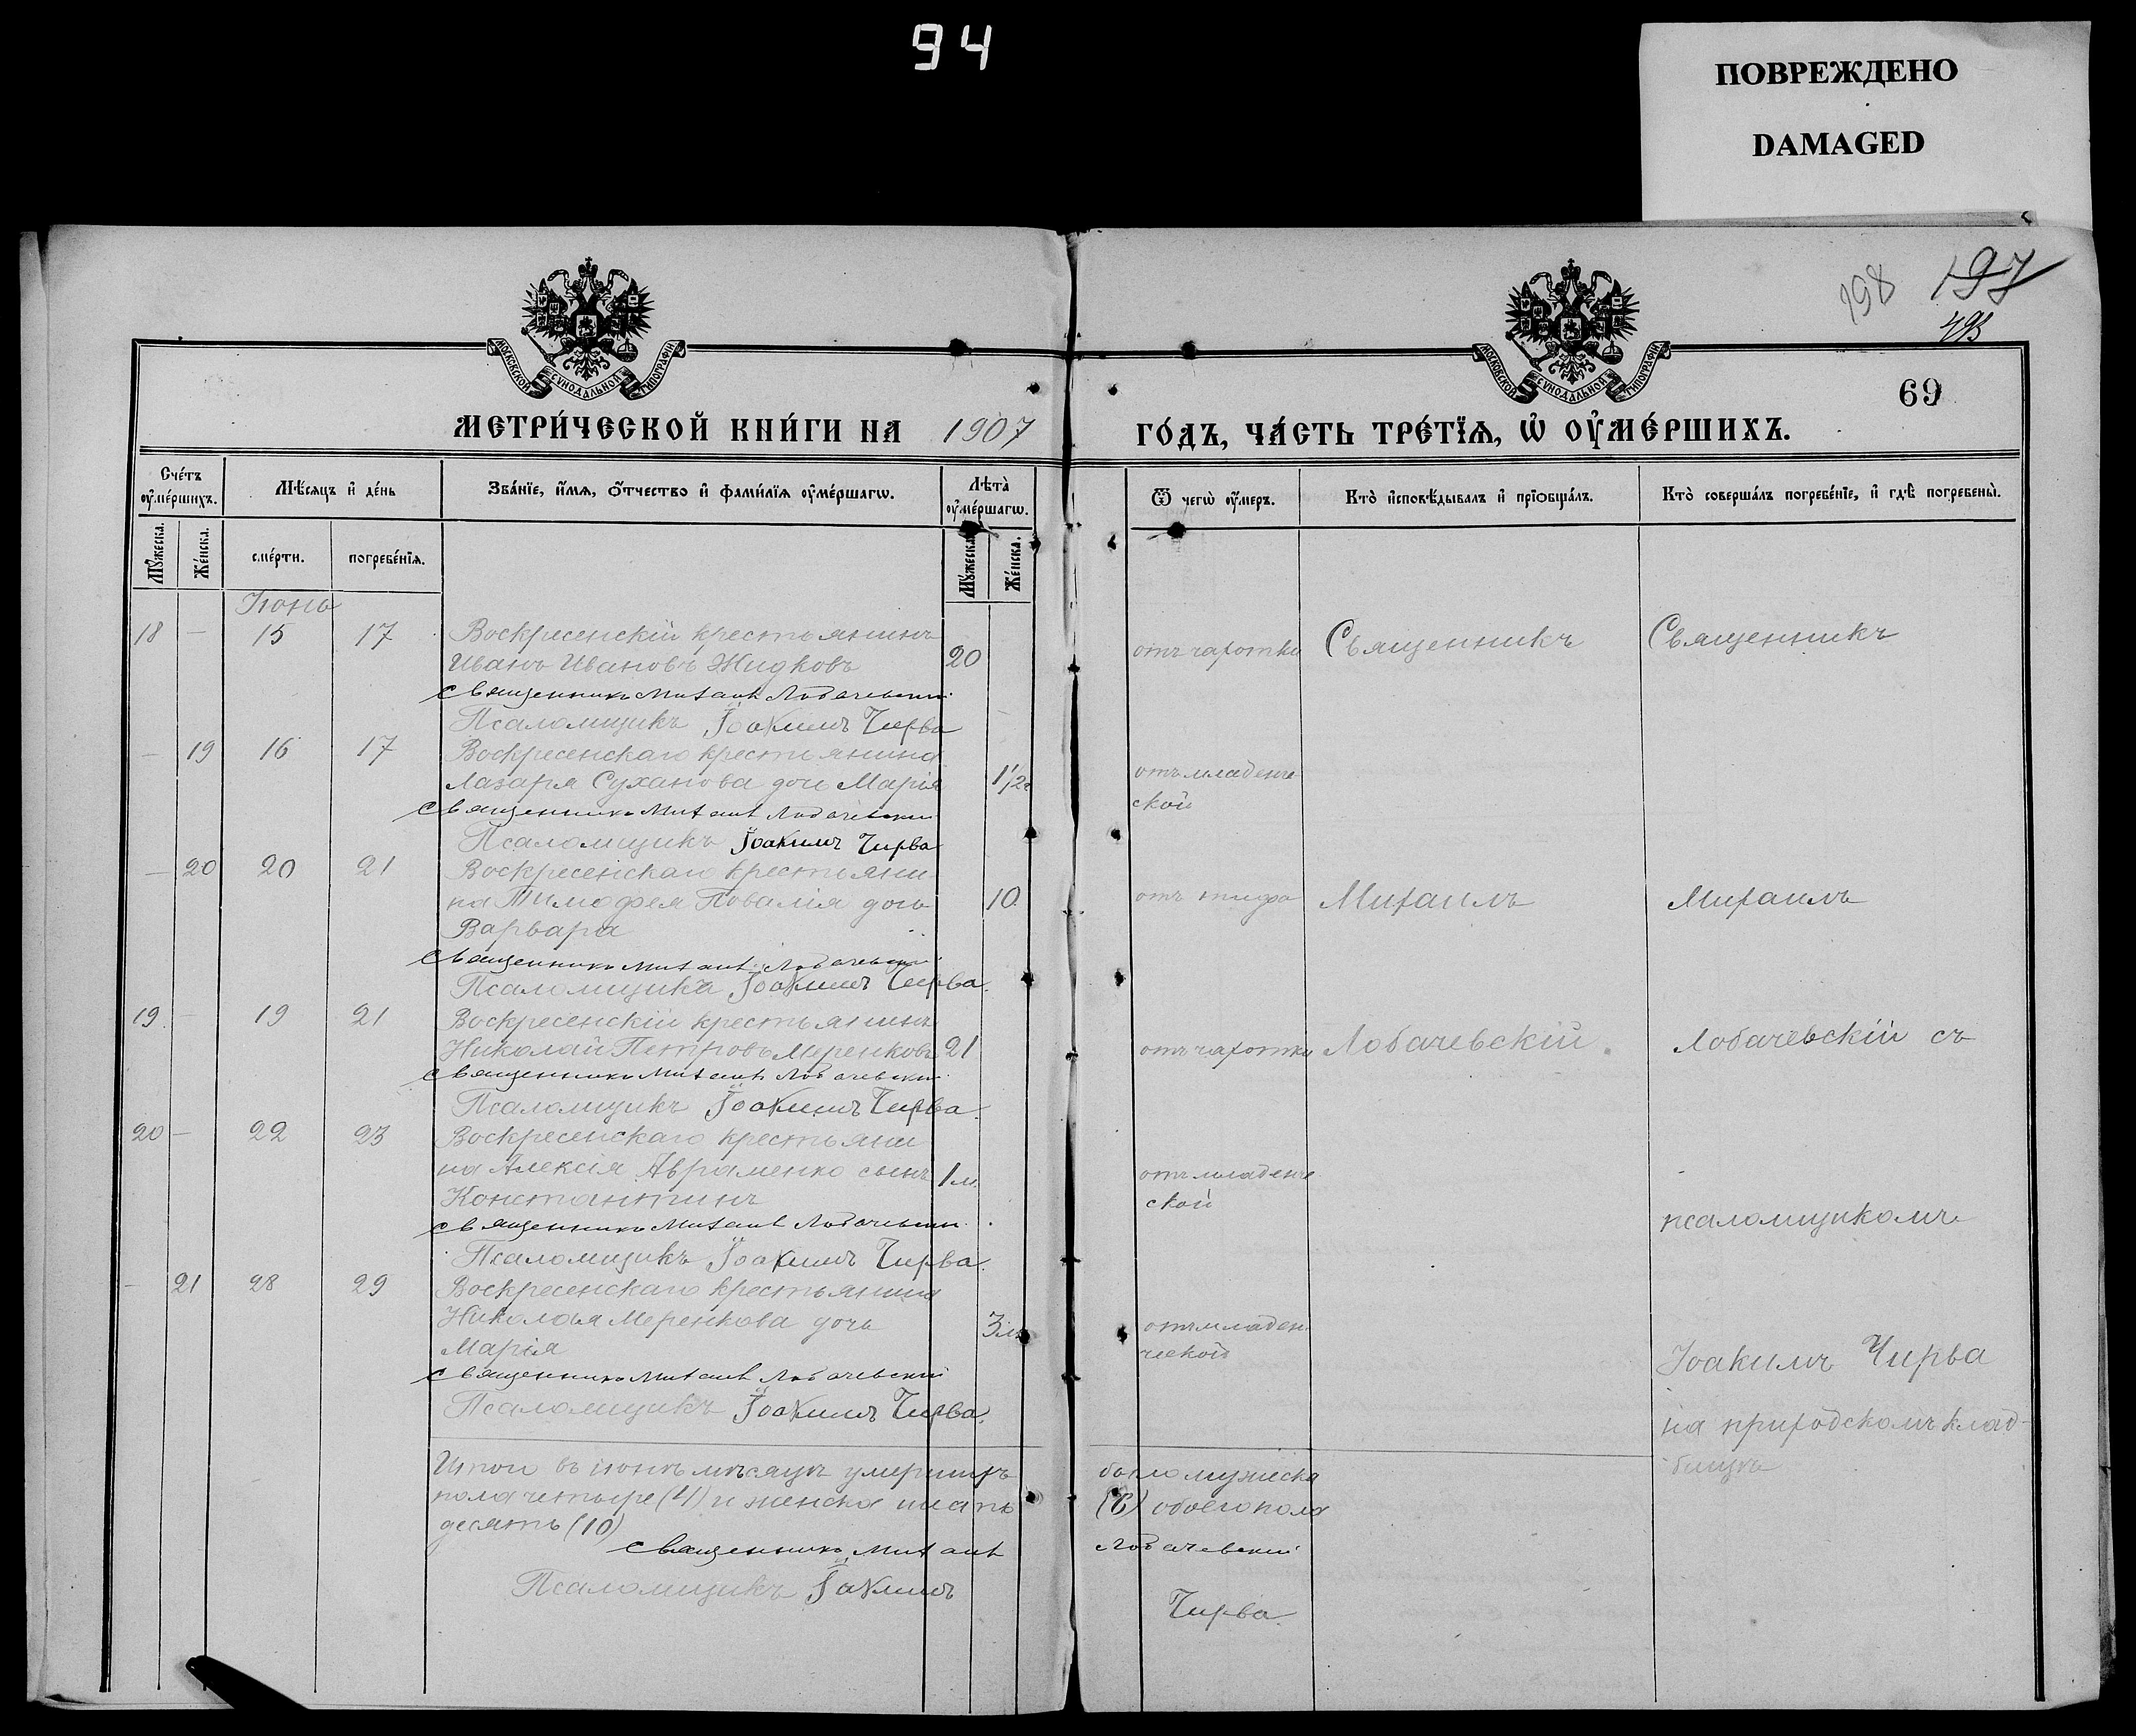 94
ПОВРЕЖДЕНО
DAMAGED
198
197
МОСКОВСКОЙ СѴНОДАЛЬНОЙ ТИПОГРАФІИ
МОСКОВСКОЙ СѴНОДАЛЬНОЙ ТИПОГРАФІИ
69
МЕТРИ́ЧЕСКОЙ КНИ́ГИ НА 1907 ГО́ДЪ, ЧА́СТЬ ТРЕ́ТЇѦ, Ѡ҆ ОУ҆МЕ́РШИХЪ.
Сче́тъ оу҆ме́ршихъ.
Мѣ́сяцъ и҆ де́нь
Зва́нїе, и҆́мѧ, ѻ҆́тчество и҆ фами́лїѧ оу҆ме́ршагѡ.
Лѣ́та оу҆ме́ршагѡ.
Ѿ чегѡ̀ оу҆́меръ.
Кто̀ и҆сповѣ́дывалъ и҆ прїѡбща́лъ.
Кто̀ соверша́лъ погребе́нїе, и҆ гдѣ̀ погребены̀.
Мꙋ́жеска.
Же́нска.
сме́рти.
погребе́нїѧ.
Мꙋ́жеска.
Же́нска.
Іюнь
18 — 15 17 Воскресенскій крестьянинъ
Иванъ Ивановъ Жидковъ 20 отъ чахотки Священникъ Священникъ
Священникъ Михаилъ Лобачевский
Псаломщикъ Іоакимъ Чирва
— 19 16 17 Воскресенскаго крестьянина
Лазаря Суханова дочь Марія 1½ г отъ младенче
ской
Священникъ Михаилъ Лобачевский
Псаломщикъ Іоакимъ Чирва
— 20 20 21 Воскресенскаго крестьяни
на Тимофея Поваля дочь 10. отъ тифа Михаилъ Михаилъ
Варвара
Священникъ Михаилъ Лобачевский
Псаломщикъ Іоакимъ Чирва.
19 — 19 21 Воскресенскій крестьянинъ
Николай Петровъ Меренковъ 21 отъ чахотки Лобачевскій. Лобачевскій съ
Священникъ Михаилъ Лобачевский
Псаломщикъ Іоакимъ Чирва.
20 — 22 23 Воскресенскаго крестьяни
на Алексія Авраменко сынъ 1 м. отъ младенче
Константинъ ской
псаломщикомъ
Священникъ Михаилъ Лобачевский
Псаломщикъ Іоакимъ Чирва.
— 21 28 29 Воскресенскаго крестьянина
Николая Меренкова дочь 3 м. отъ младен
Марія ческой
Іоакимъ Чирва
Священникъ Михаилъ Лобачевский
Псаломщикъ Іоакимъ Чирва.
на приходскомъ клад-
бищѣ
Итого въ іюнѣ мѣсяцѣ умершихъ было мужеска
пола четыре (4) и женска шесть (6) обоего пола
десять (10)
Священникъ Михаилъ Лобачевский
Псаломщикъ Іоакимъ Чирва.